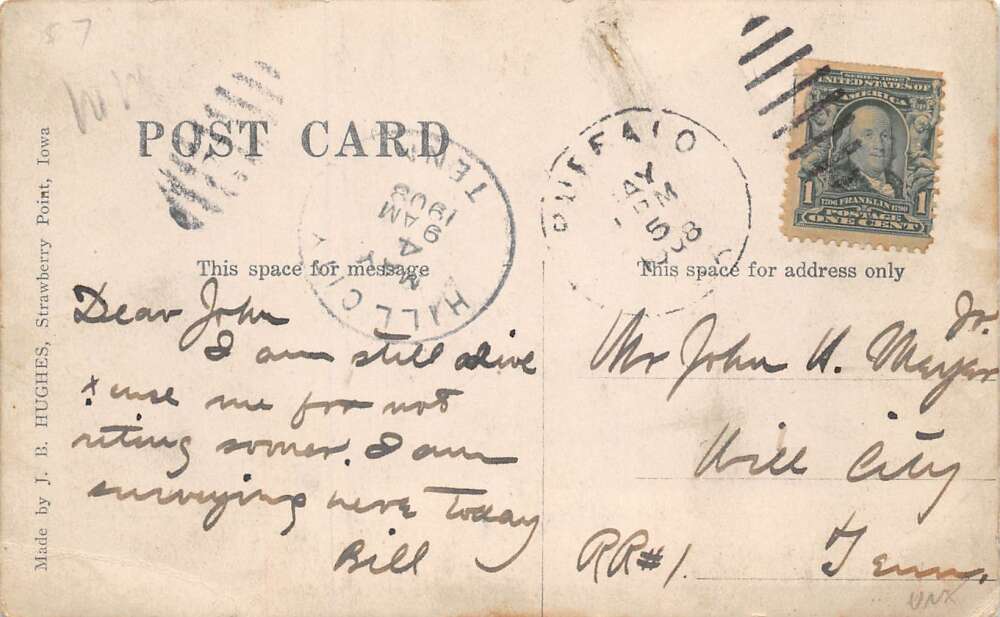 57
POST CARD
Made by J. B. HUGHES, Strawberry Point, Iowa
This space for message
Dear John
I am still alive
x use me for not
riting sooner. I am
surveying here today
Bill
HILL CITY
TENN
MAY
4
9 AM
1908
BUFFALO
MAY
5
SERIES 1902
UNITED STATES OF
AMERICA
1
1
1706 FRANKLIN 1790
POSTAGE
ONE CENT
This space for address only
Mr John H. Meyer Jr.
Hill City
RR#1. Tenn.